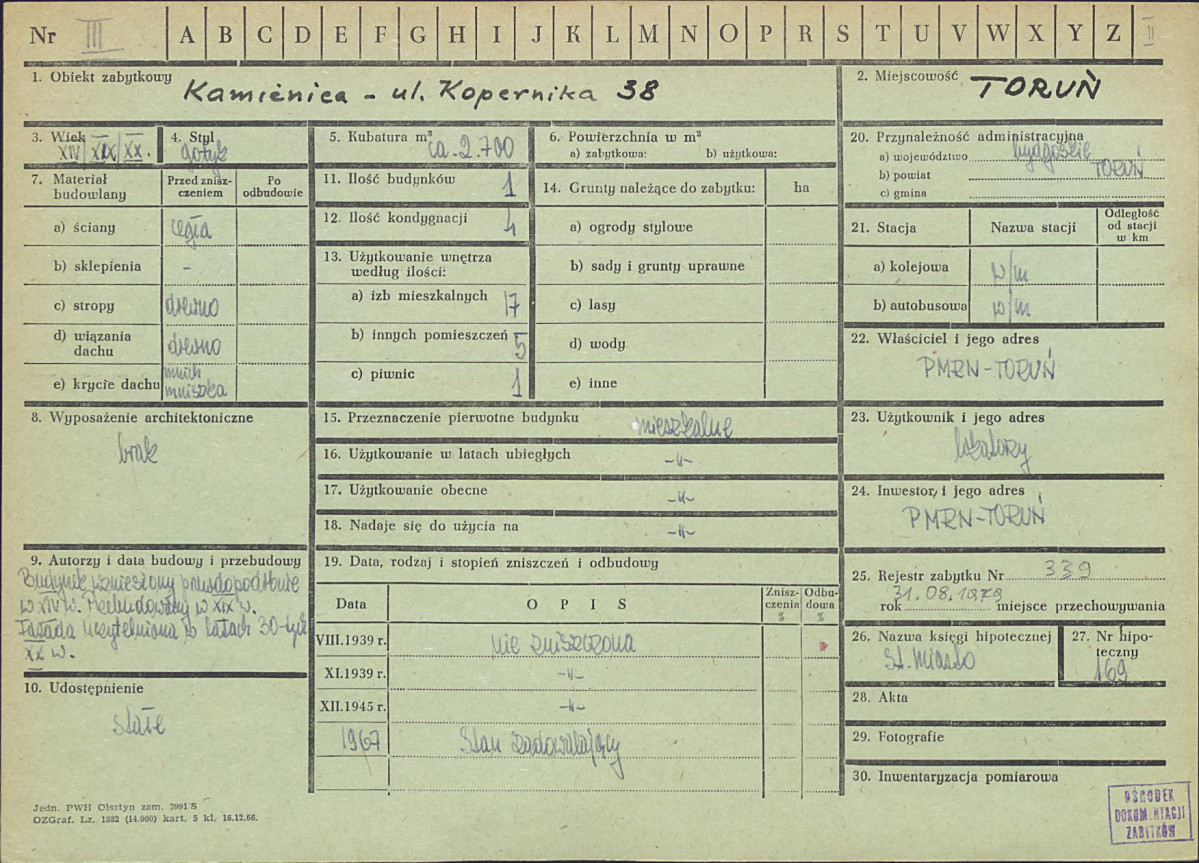 Nr III A B C D E F G H I J K L M N O P R S T U V W X Y Z II
1. Obiekt zabytkowy
Kamienica - ul. Kopernika 38
2. Miejscowość
TORUŃ
3. Wiek
XIV/XIX/XX.
4. Styl
gotyk
5. Kubatura m³
ca. 2.700
6. Powierzchnia w m²
a) zabytkowa: b) użytkowa:
7. Materiał budowlany
Przed zniszczeniem
Po odbudowie
a) ściany cegła
b) sklepienia -
c) stropy drewno
d) wiązania dachu drewno
e) krycie dachu mnich mniszka
8. Wyposażenie architektoniczne
brak
9. Autorzy i data budowy i przebudowy
Budynek wzniesiony prawdopodobnie
w XIV w. Przebudowany w XIX w.
Fasada uczytelniona w latach 30-tych
XX w.
10. Udostępnienie
stałe
11. Ilość budynków 1
12. Ilość kondygnacji 4
13. Użytkowanie wnętrza
według ilości:
a) izb mieszkalnych 17
b) innych pomieszczeń 5
c) piwnic 1
14. Grunty należące do zabytku: ha
a) ogrody stylowe
b) sady i grunty uprawne
c) lasy
d) wody
e) inne
15. Przeznaczenie pierwotne budynku mieszkalne
16. Użytkowanie w latach ubiegłych -"-
17. Użytkowanie obecne -"-
18. Nadaje się do użycia na -"-
19. Data, rodzaj i stopień zniszczeń i odbudowy
Data O P I S Zniszczenia % Odbudowa %
VIII.1939 r. nie zniszczona
XI.1939 r. -"-
XII.1945 r. -"-
1967 Stan zadowalający
20. Przynależność administracyjna
a) województwo bydgoskie
b) powiat TORUŃ
c) gmina
21. Stacja Nazwa stacji Odległość od stacji w km
a) kolejowa w/m
b) autobusowa w/m
22. Właściciel i jego adres
PMRN-TORUŃ
23. Użytkownik i jego adres
lokatorzy
24. Inwestor, i jego adres
PMRN-TORUŃ
25. Rejestr zabytku Nr 339
rok 31.08.1979 miejsce przechowywania
26. Nazwa księgi hipotecznej
St. Miasto
27. Nr hipoteczny
169
28. Akta
29. Fotografie
30. Inwentaryzacja pomiarowa
Jedn. PWH Olsztyn zam. 3991/S
OZGraf. Lz. 1882 (14.000) kart. 5 kl. 16.12.66.
OŚRODEK
DOKUMENTACJI
ZABYTKÓW